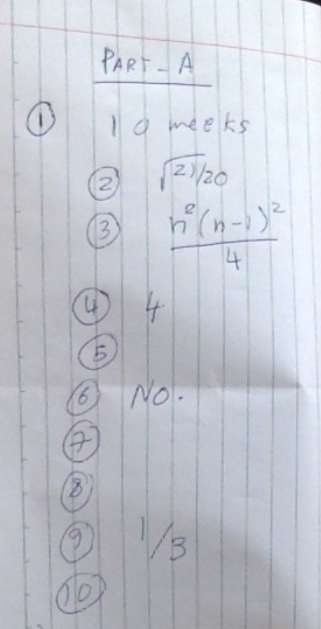 PART - A
① 10 meeks
② √21/20
③ n²(n-1)²/4
④ 4
⑤
⑥ NO.
⑦
⑧
⑨ 1/3
⑩